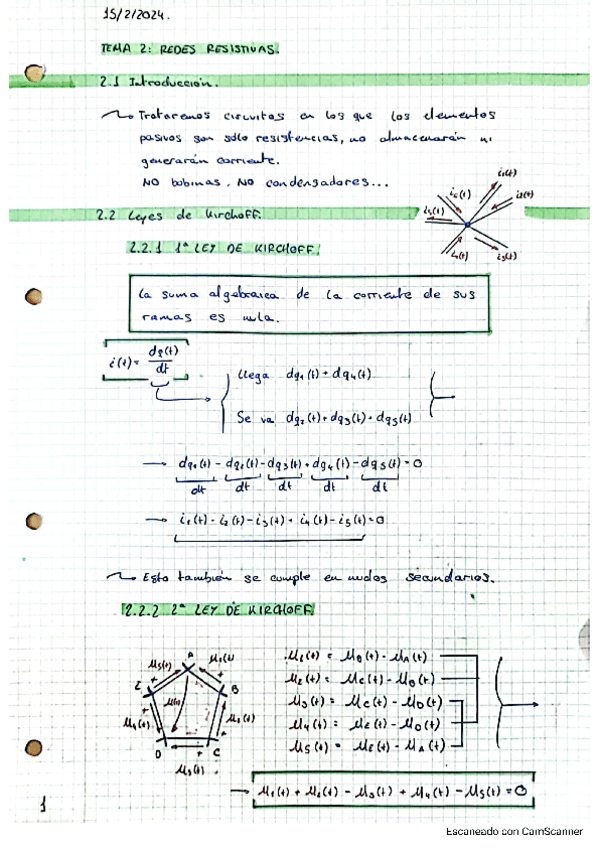 15/2/2024.
TEMA 2: REDES RESISTIVAS.
2.1 Introducción.
Trataremos circuitos en los que los elementos
pasivos son sólo resistencias, no almacenarán ni
generarán corriente.
NO bobinas. NO condensadores...
i1(t)
i2(t)
i3(t)
i4(t)
i5(t)
2.2 Leyes de Kirchoff.
2.2.1 1ª LEY DE KIRCHOFF.
La suma algebraica de la corriente de sus
ramas es nula.
i(t) = dq(t)/dt
Llega dq1(t) + dq4(t)
Se va dq2(t) + dq3(t) + dq5(t)
→ dq1(t)/dt - dq2(t)/dt - dq3(t)/dt + dq4(t)/dt - dq5(t)/dt = 0
→ i1(t) - i2(t) - i3(t) + i4(t) - i5(t) = 0
Esto también se cumple en nudos secundarios.
2.2.2 2ª LEY DE KIRCHOFF
A
B
C
D
E
μ5(t)
μ1(t)
μ(t)
μ4(t)
μ2(t)
μ3(t)
μ1(t) = μB(t) - μA(t)
μ2(t) = μC(t) - μB(t)
μ3(t) = μC(t) - μD(t)
μ4(t) = μE(t) - μD(t)
μ5(t) = μE(t) - μA(t)
→ μ1(t) + μ2(t) - μ3(t) + μ4(t) - μ5(t) = 0
1
Escaneado con CamScanner